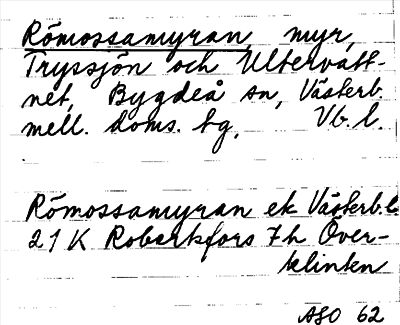 Römossamyran, myr,
Tryssjön och Ultervatt-
net, Bygdeå sn, Västerb.
mell. doms. tg, Vb. l.
Römossamyran ek Västerb.l.
21 K Robertsfors 7h Över-
klinten
ASO 62